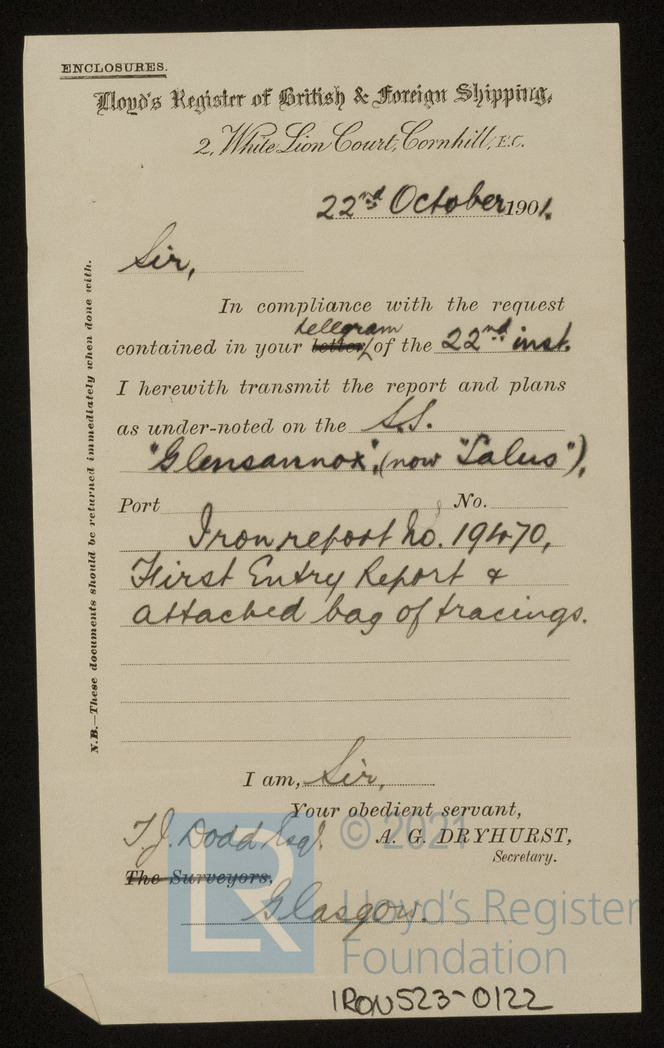 ENCLOSURES.
Lloyd's Register of British & Foreign Shipping,
2, White Lion Court, Cornhill, E.C.
22nd October 1901.
Sir,
In compliance with the request
tellgram
contained in your letter of the 22nd inst.
I herewith transmit the report and plans
as under-noted on the S.S.
"Glensannox", (now "Salus"),
Port No.
Iron report No. 19470,
First Entry Report &
attached bag of tracings.
N.B.—These documents should be returned immediately when done with.
I am, Sir,
Your obedient servant,
T.J. Dodd Esqr.
A. G. DRYHURST,
Secretary.
The Surveyors,
Glasgow.
© 2021
LR
Lloyd's Register
Foundation
IRON523-0122